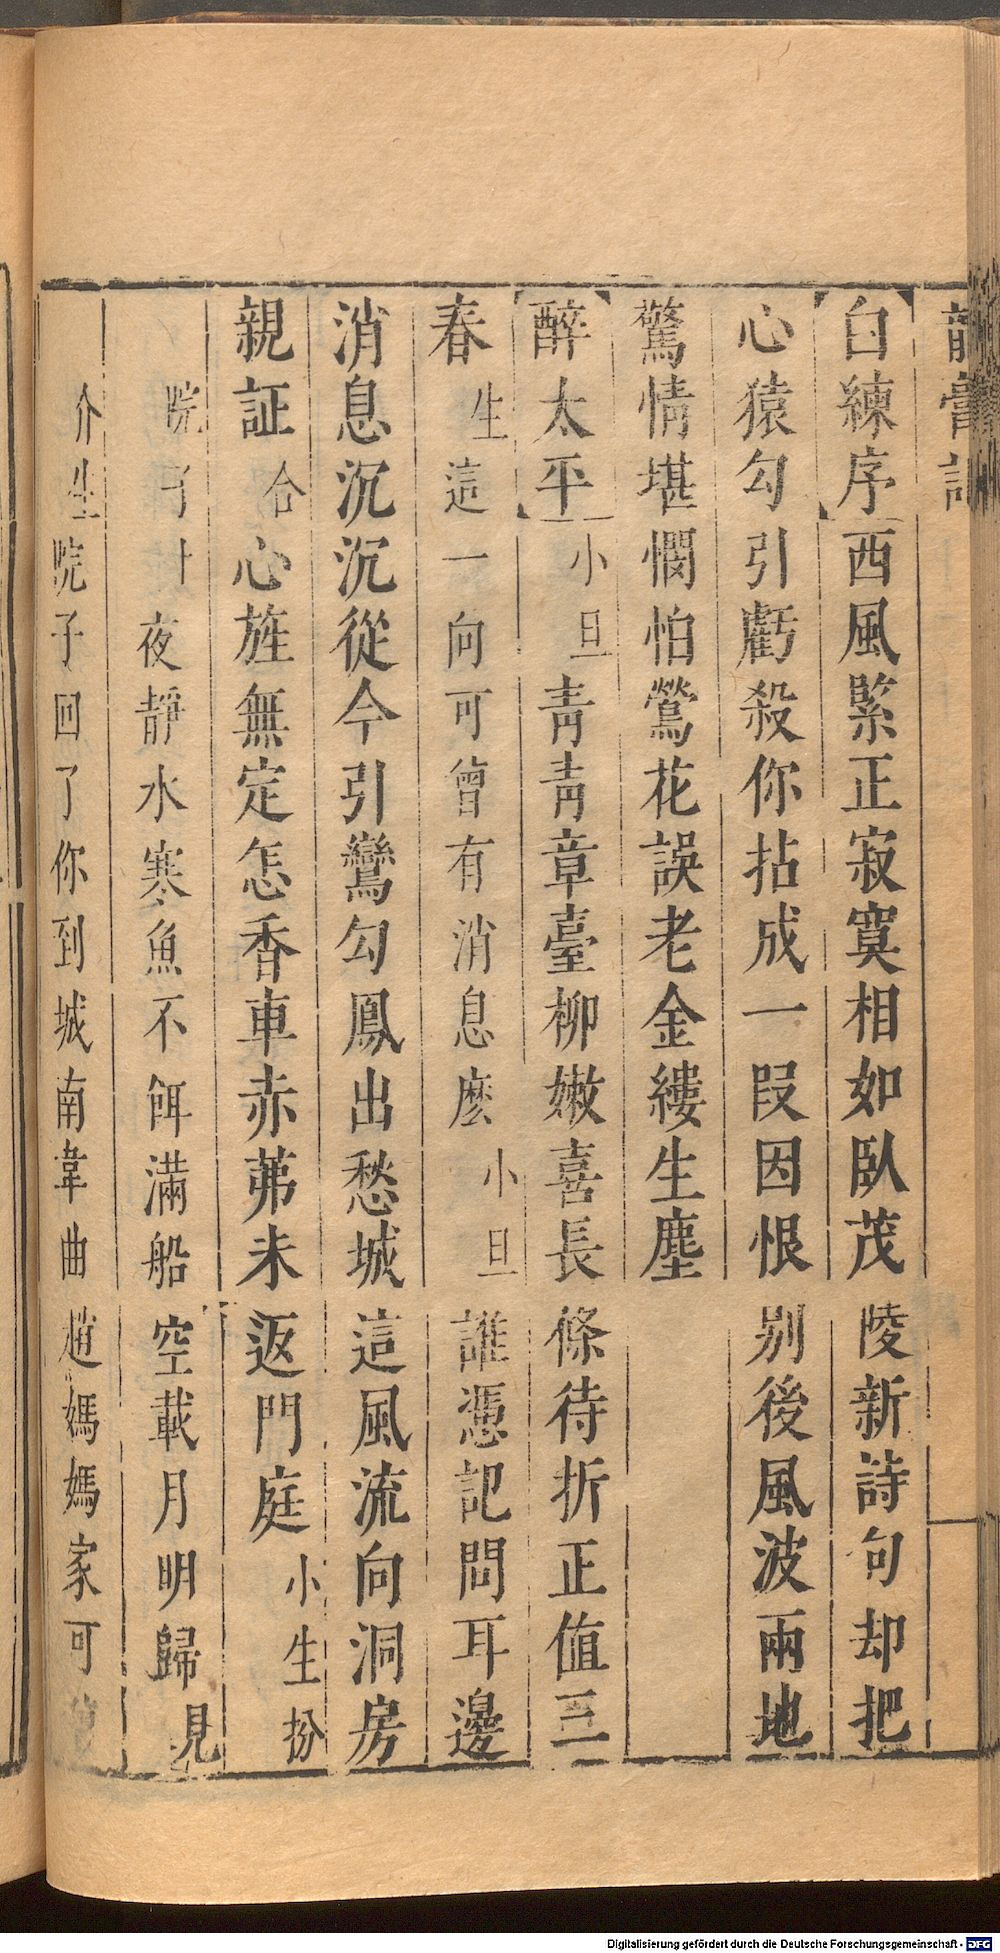 龍膏記
【白練序】西風緊正寂寞相如臥茂陵新詩句却把
心猿勾引虧殺你拈成一段因恨别後風波兩地
驚情堪憫怕鶯花誤老金縷生塵
【醉太平】小旦青青章臺柳嫩喜長條待折正值三
春生這一向可曾有消息麽小旦誰憑記問耳邊
消息沉沉從今引鸞勾鳳出愁城這風流向洞房
親証合心旌無定怎香車赤茀未返門庭小生扮
院子上夜靜水寒魚不餌滿船空載月明歸見
介生院子回了你到城南韋曲趙媽媽家可
Digitalisierung gefördert durch die Deutsche Forschungsgemeinschaft - DFG